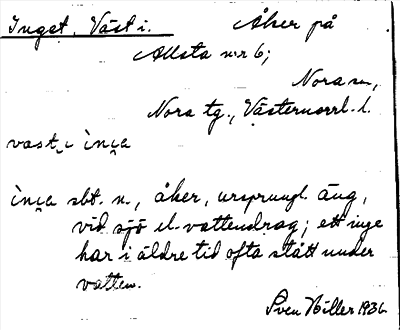 Inget, Väst i. Åker på
Allsta n:r 6;
Nora sn,
Nora tg., Västernorrl. l.
vast i ìn̯a
ìn̯a sbt. n., åker, ursprungl. äng,
vid sjö el. vattendrag; ett inge
har i äldre tid ofta stått under
vatten.
Sven Hiller 1936.